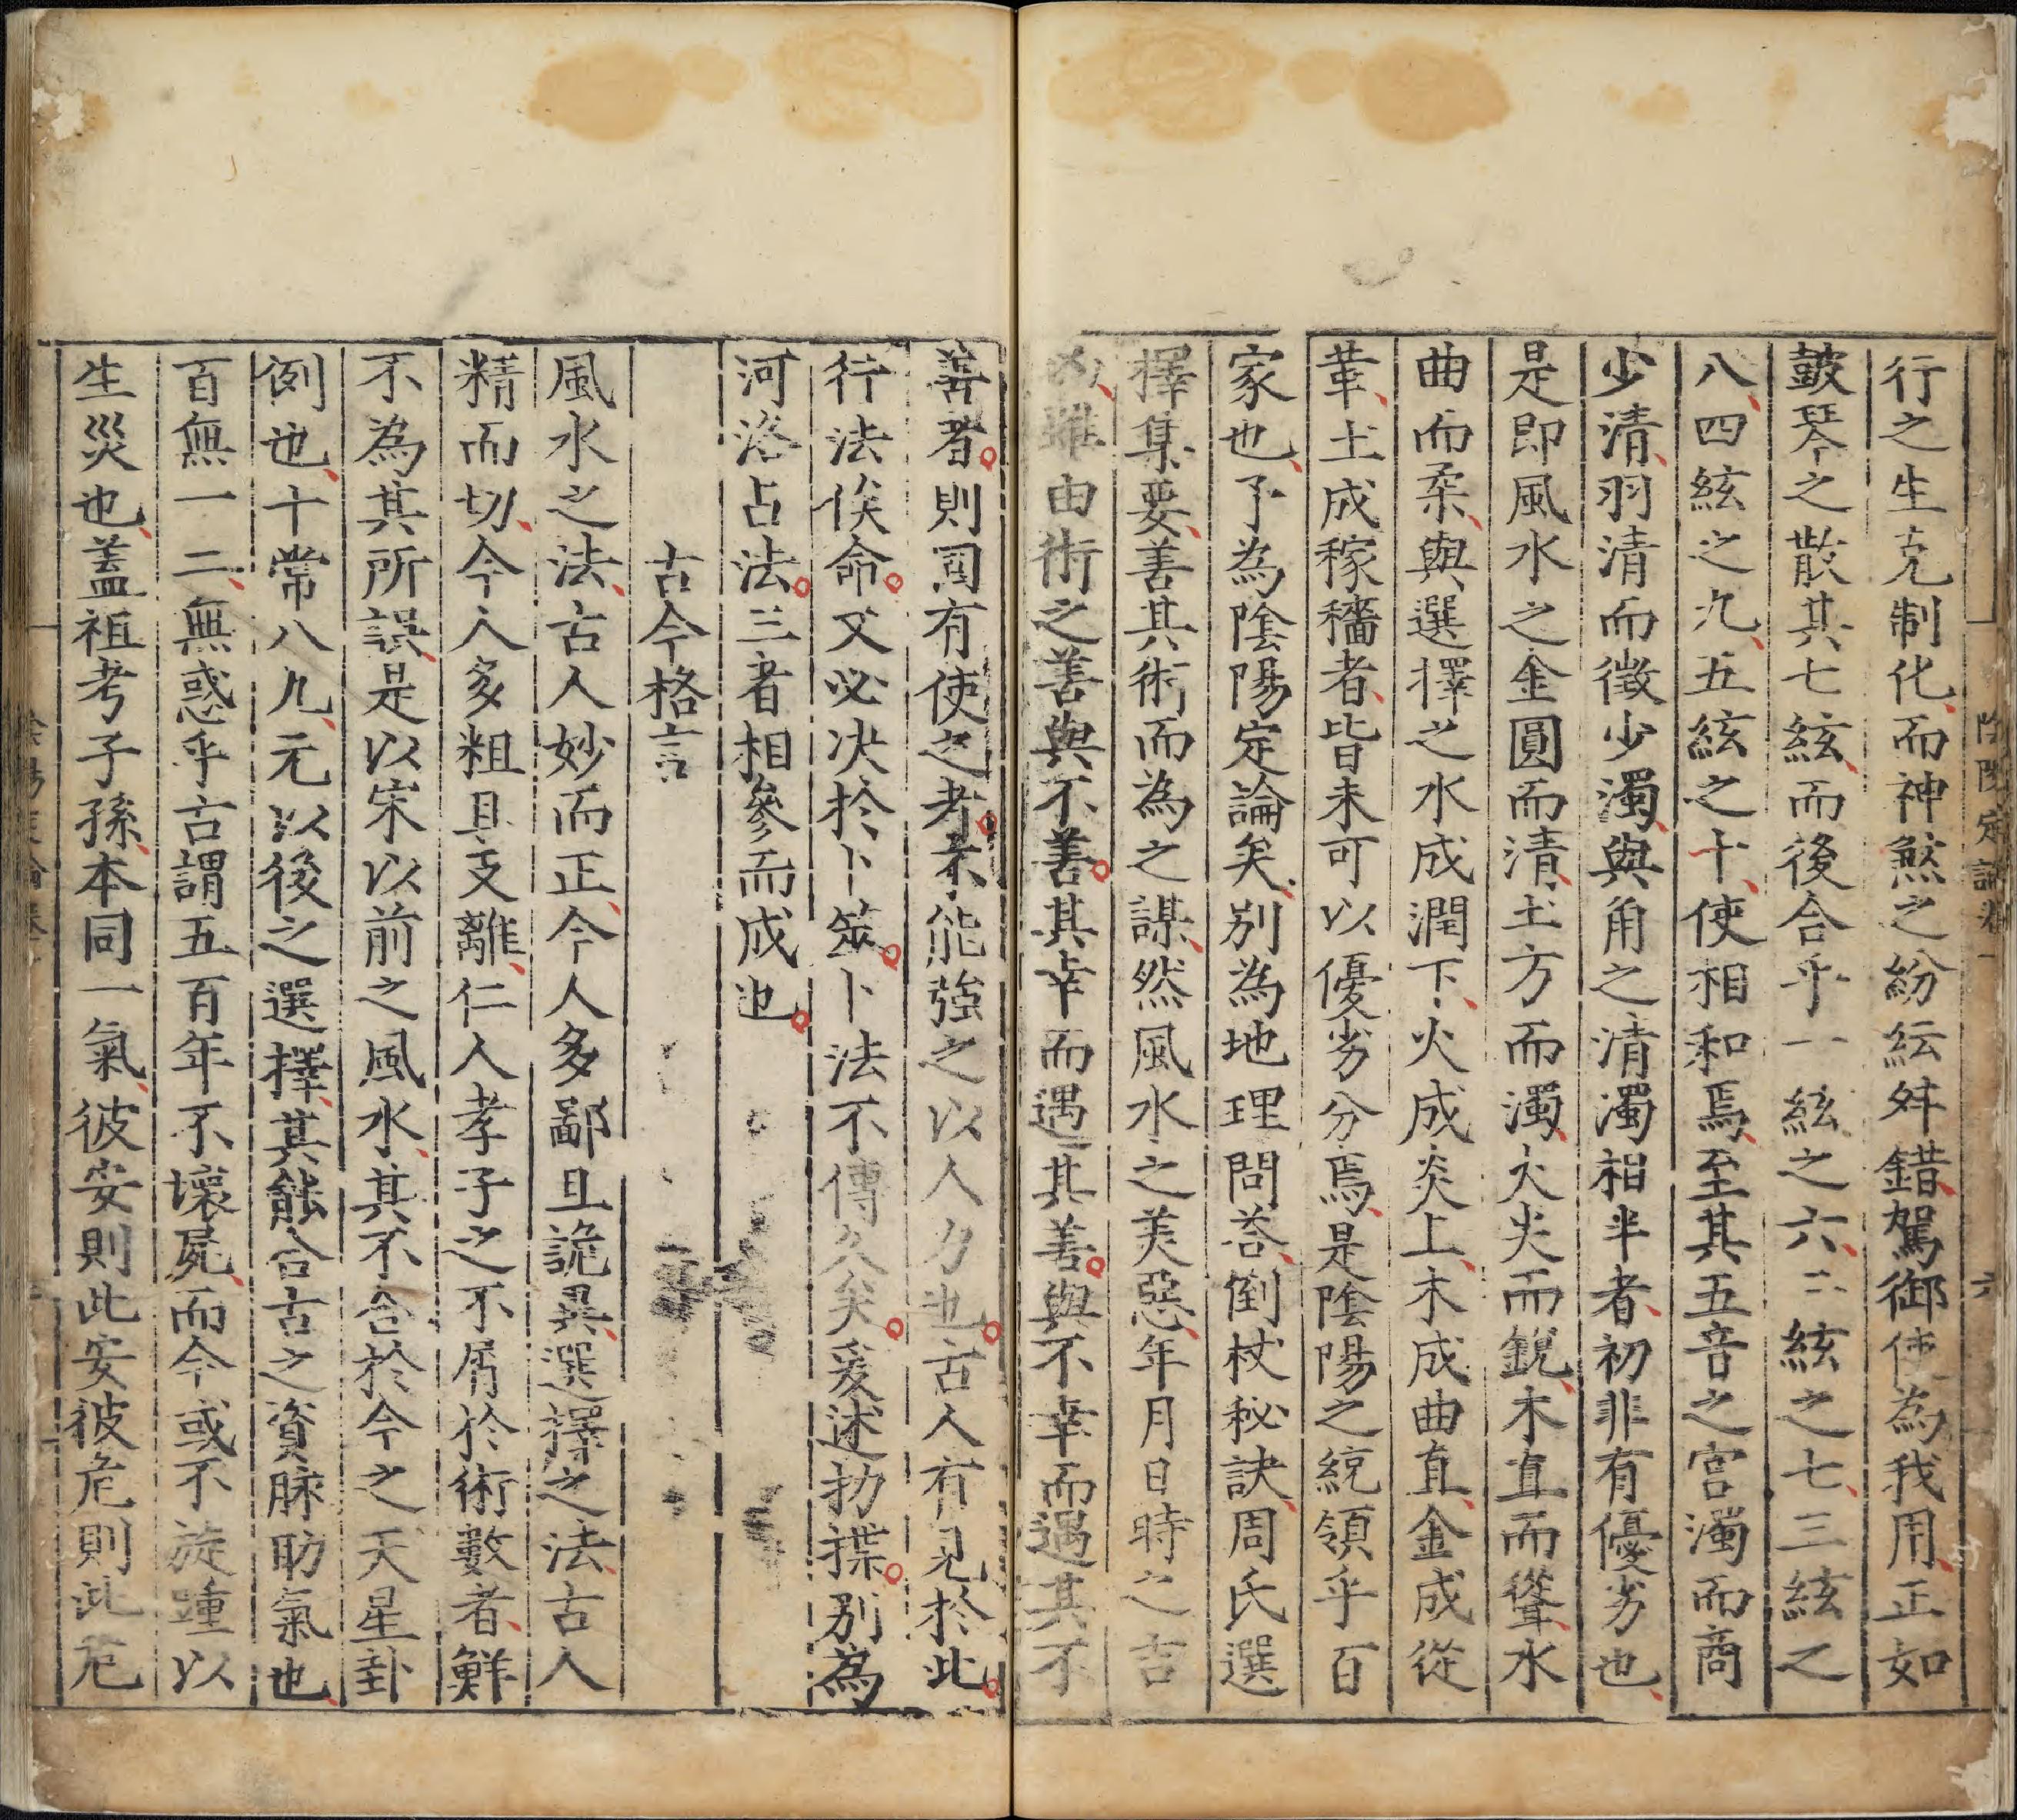 陰陽定論卷一 六
行之生克制化而神煞之紛紜舛錯駕御使為我用正如
鼓琴之散其七絃而後合乎一絃之六二絃之七三絃之
八四絃之九五絃之十使相和焉至其五音之宮濁而商
少清羽清而徵少濁與角之清濁相半者初非有優劣也
是即風水之金圓而清土方而濁火尖而銳木直而聳水
曲而柔與選擇之水成潤下火成炎上木成曲直金成從
革土成稼穡者皆未可以優劣分焉是陰陽之統領乎百
家也予為陰陽定論矣別為地理問荅倒杖秘訣周氏選
擇集要善其術而為之謀然風水之美惡年月日時之吉
凶雖由術之善與不善其幸而遇其善與不幸而遇其不
善者則固有使之者不能強之以人力也古人有見於此
行法俟命又必决於卜筮卜法不傳久矣爰述扐揲別為
河洛占法三者相參而成也
古今格言
風水之法古人妙而正今人多鄙且詭異選擇之法古人
精而切今人多粗且支離仁人孝子之不屑於術數者鮮
不為其所誤是以宋以前之風水其不合於今之天星卦
例也十常八九元以後之選擇其能合古之資脉助氣也
百無一二無惑乎古謂五百年不壞屍而今或不旋踵以
生災也蓋祖考子孫本同一氣彼安則此安彼危則此危
陰陽定論卷